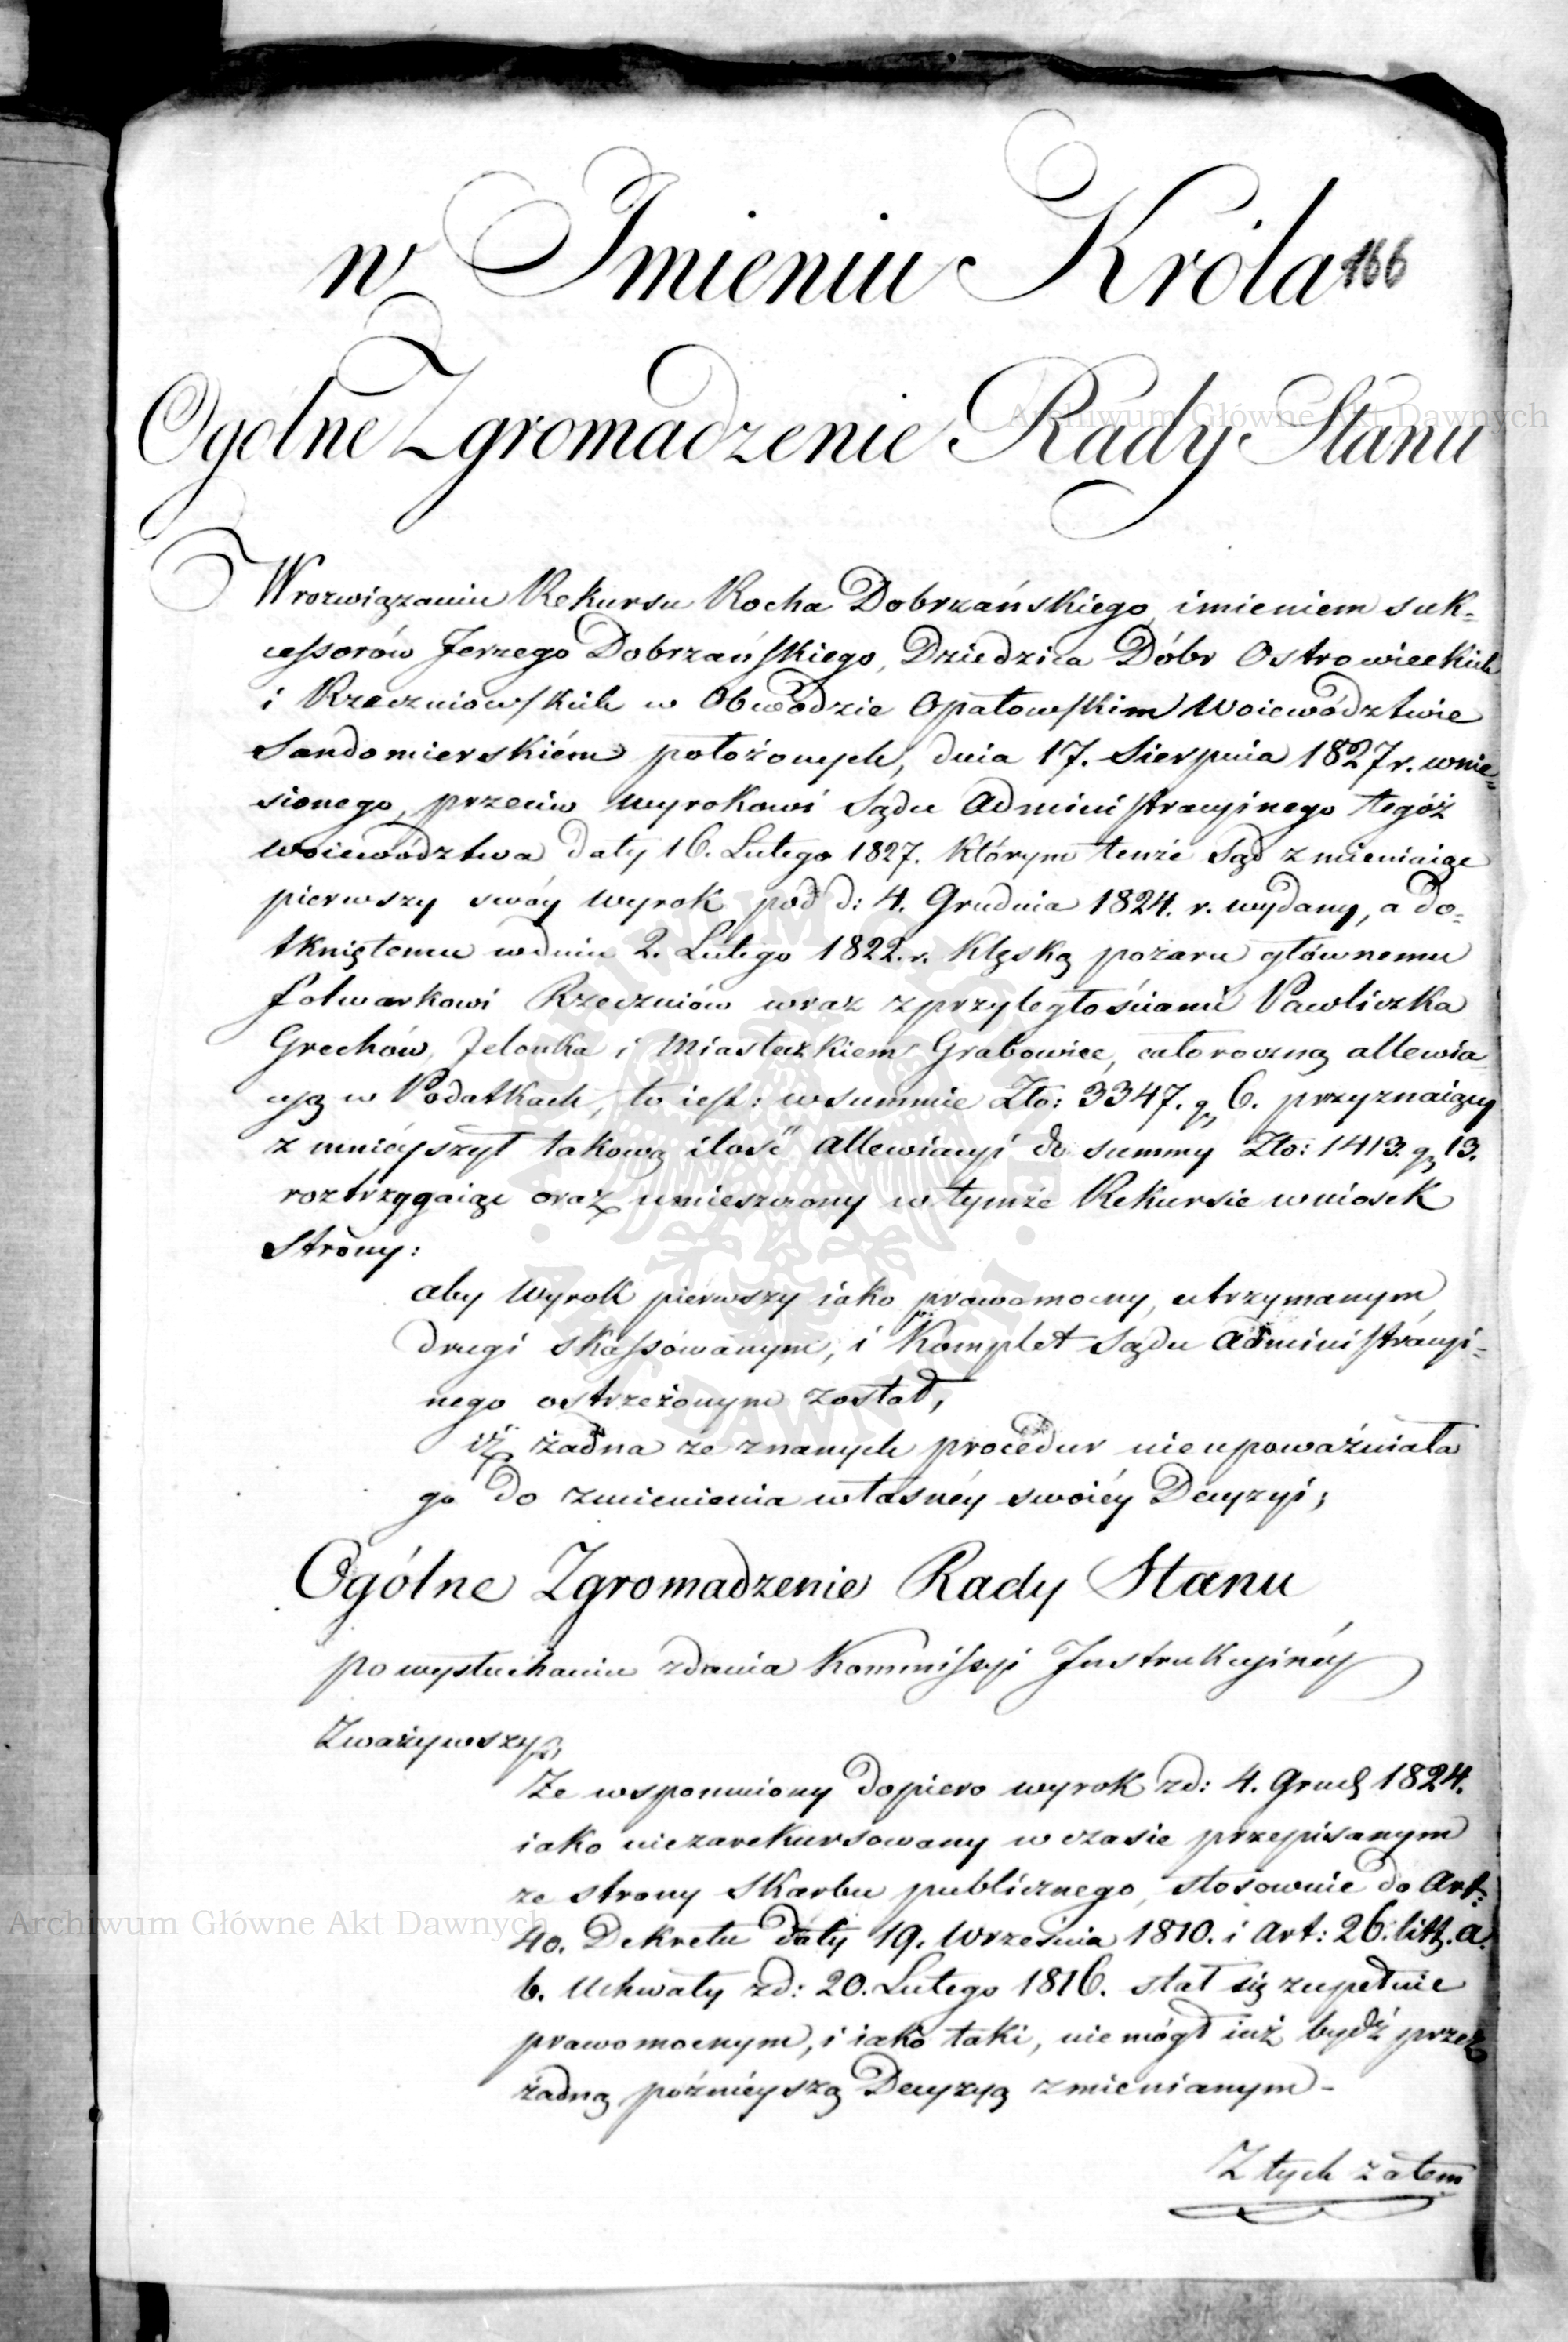 w Imieniu Króla 166
Ogólne Zgromadzenie Rady Stanu
W rozwiązaniu Rekursu Rocha Dobrzańskiego, imieniem suk-
cessorów Jerzego Dobrzańskiego, Dziedzica Dóbr Ostrowieckich
i Rzeczniowskich w Obwodzie Opatowskim Woiewództwie
Sandomierskiém położonych, dnia 17. Sierpnia 1827 r. wnie-
sionego, przeciw wyrokowi Sądu Administracyinego tegóż
Woiewództwa daty 16. Lutego 1827. którym tenże Sąd zmieniaiąc
pierwszy swóy wyrok pod d: 4. Grudnia 1824. r. wydany, a do-
tkniętemu w dniu 2. Lutego 1822. r. klęską pożaru głównemu
folwarkowi Rzeczniów wraz z przyległościami Pawliczka
Grechów, Jelonka i Miasteczkiem Grabowiec, całoroczną allewia-
cyą w Podatkach, to iest: w summie Zło: 3347. g. 6. przyznaiący
zmnieyszył takową ilość allewiacyi do summy Zło: 1413. g. 13.
roztrzygaiąc oraz umieszczony w tymże Rekursie wniosek
Strony:
aby Wyrok pierwszy iako prawomocny, utrzymanym,
drugi skassowanym, i Komplet Sądu Administracyi-
nego ostrzeżonym został,
iż żadna ze znanych procedur nieupoważniała
go do zmienienia własnéy swoiéy Decyzyi;
Ogólne Zgromadzenie Rady Stanu
po wysłuchaniu zdania Kommissyi Instrukcyinéy
Zważywszy,
Że wspomniony dopiero wyrok z d: 4. Grud. 1824.
iako niezarekursowany w czasie przepisanym
ze strony Skarbu publicznego, stosownie do Art:
40. Dekretu daty 19. Września 1810. i Art: 26. litt. a.
b. Uchwały z d: 20. Lutego 1816. stał się zupełnie
prawomocnym, i iako taki, nie mógł iuż bydź przez
żadną poźnieyszą Decyzyą zmienianym -
Z tych zatem
Archiwum Główne Akt Dawnych
Archiwum Główne Akt Dawnych